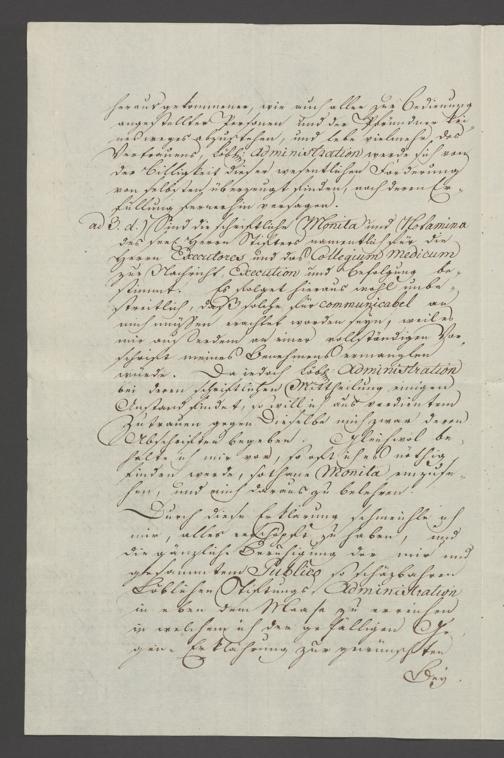 herausgekommener, wie auch aller zur Bedienung
angestellter Personen und der Pfründner kei-
nes weges abzustehen, und lebe vielmehr des
Vertrauens, löbl. Administration werde sich von
der Billigkeit dieser wesentlichen Forderung
von selbsten überzeugt finden, nach deren Er-
füllung fernerhin versagen.
ad 3. d.) Sind die schriftliche Monita und
des seel. Herrn Stifters namentlich für die
Herrn Executores und das Collegium medicum
zur Nachricht Execution und Befolgung be-
stimmt. Es folget heraus wohl unbe-
streitlich, daß solche für communicabel an
mich müssen erachtet worden seyn, weil es
mir ausserdem an einer vollständigen Vor-
schrift meines Benehmens ermanglen
würde. Da jedoch löbl. Administration
bei deren schriftlichen Mittheilung einigen
Anstand findet, so will ich aus verdientem
Zutrauen gegen Dieselbe mich zwar deren
Abschriften begeben. Gleichwol be-
halte ich mir vor, so oft ich es nöthig
finden werde, sothane Monita einzuse-
hen, und mich daraus zu belehren.
Durch diese Erklärung schmeichle ich
mir, alles erschöpft zu haben, und
die gänzliche Beruhigung der mir und
gesammtem Publico so schäzbahren
Löblichen Stiftungs Administration
in eben dem Maase zu erreichen
in welchem ich der gefälligen Ge-
gen-Erklährung zur gewünschten
Bey-